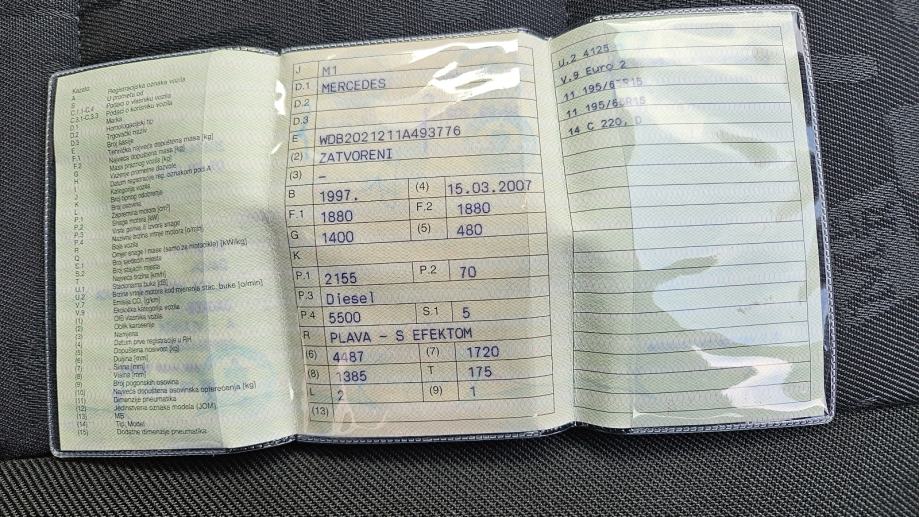 Kazalo
A Registracijska oznaka vozila
B U prometu od
C.1.1-C.4 Podaci o vlasniku vozila
C.3.1-C.3.3 Podaci o korisniku vozila
D.1 Marka
D.2 Homologacijski tip
D.3 Trgovački naziv
E Broj šasije
F.1 Tehnička najveća dopuštena masa [kg]
F.2 Najveća dopuštena masa [kg]
G Masa praznog vozila [kg]
H Važenje prometne dozvole
I Datum registracije reg. oznakom pod A
J Kategorija vozila
K Broj tipnog odobrenja
L Broj osovina
P.1 Zapremina motora [cm³]
P.2 Snaga motora [kW]
P.3 Vrsta goriva ili izvora snage
P.4 Nazivna brzina vrtnje motora [o/min]
R Boja vozila
Q Omjer snage i mase (samo za motocikle) [kW/kg]
S.1 Broj sjedećih mjesta
S.2 Broj stajaćih mjesta
T Najveća brzina [km/h]
U.1 Stacionarna buka [dB]
U.2 Brzina vrtnje motora kod mjerenja stac. buke [o/min]
V.7 Emisija CO₂ [g/km]
V.9 Ekološka kategorija vozila
(1) OIB vlasnika vozila
(2) Oblik karoserije
(3) Namjena
(4) Datum prve registracije u RH
(5) Dopuštena nosivost [kg]
(6) Dužina [mm]
(7) Širina [mm]
(8) Visina [mm]
(9) Broj pogonskih osovina
(10) Najveća dopuštena osovinska opterećenja [kg]
(11) Dimenzije pneumatika
(12) Jedinstvena oznaka modela (JOM)
(13) MB
(14) Tip, Model
(15) Dodatne dimenzije pneumatika
J M1
D.1 MERCEDES
D.2
D.3
E WDB2021211A493776
(2) ZATVORENI
(3) –
B 1997. (4) 15.03.2007
F.1 1880 F.2 1880
G 1400 (5) 480
K
P.1 2155 P.2 70
P.3 Diesel
P.4 5500 S.1 5
R PLAVA – S EFEKTOM
(6) 4487 (7) 1720
(8) 1385 T 175
L 2 (9) 1
(13)
U.2 4125
V.9 Euro 2
11 195/6 R15
11 195/6 R15
14 C 220, D